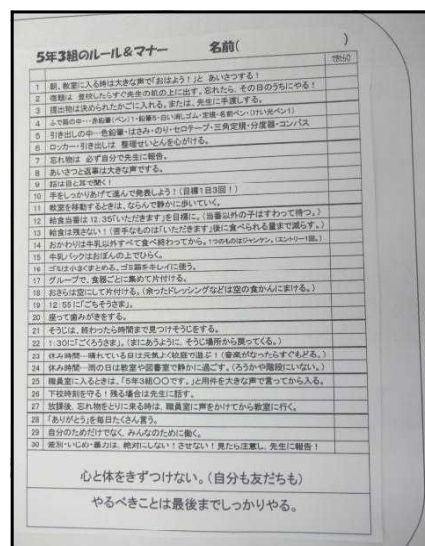 5年3組のルール&マナー　　名前(　　　　　)
できた○
1 朝、教室に入る時は大きな声で「おはよう!」と あいさつする!
2 宿題は 登校したらすぐ先生の机の上に出す。忘れたら、その日のうちにやる!
3 提出物は決められたかごに入れる。または、先生に手渡しする。
4 ふで箱の中…赤鉛筆(ペン)1・鉛筆5・白い消しゴム・定規・名前ペン・(けい光ペン1)
5 引き出しの中…色鉛筆・はさみ・のり・セロテープ・三角定規・分度器・コンパス
6 ロッカー・引き出しは 整理せいとんを心がける。
7 忘れ物は 必ず自分で先生に報告。
8 あいさつと返事は大きな声でする。
9 話は目と耳で聞く!
10 手をしっかりあげて進んで発表しよう!(目標1日3回!)
11 教室を移動するときは、ならんで静かに歩いていく。
12 給食当番は 12:35「いただきます」を目標に。(当番以外の子はすわって待つ。)
13 給食は残さない!(苦手なものは「いただきます」後に食べられる量まで減らす。)
14 おかわりは牛乳以外すべて食べ終わってから。1つのものはジャンケン。(エントリー1回。)
15 牛乳パックはおぼんの上でひらく。
16 ゴミは小さくまとめる。ゴミ箱をキレイに使う。
17 グループで、食器ごとに集めて片付ける。
18 おさらは空にして片付ける。(余ったドレッシングなどは空の食かんにまける。)
19 12:55に「ごちそうさま」。
20 座って歯みがきをする。
21 そうじは、終わったら時間まで見つけそうじをする。
22 1:30に「ごくろうさま」。(まにあうように、そうじ場所から戻ってくる。)
23 休み時間…晴れている日は元気よく校庭で遊ぶ!(音楽がなったらすぐもどる。)
24 休み時間…雨の日は教室や図書室で静かに過ごす。(ろうかや階段にいない。)
25 職員室に入るときは、「5年3組○○です。」と用件を大きな声で言ってから入る。
26 下校時刻を守る!残る場合は先生に話す。
27 放課後、忘れ物をとりに来る時は、職員室に声をかけてから教室に行く。
28 「ありがとう」を毎日たくさん言う。
29 自分のためだけでなく、みんなのために働く。
30 差別・いじめ・暴力は、絶対にしない!させない!見たら注意し、先生に報告!
心と体をきずつけない。(自分も友だちも)
やるべきことは最後までしっかりやる。